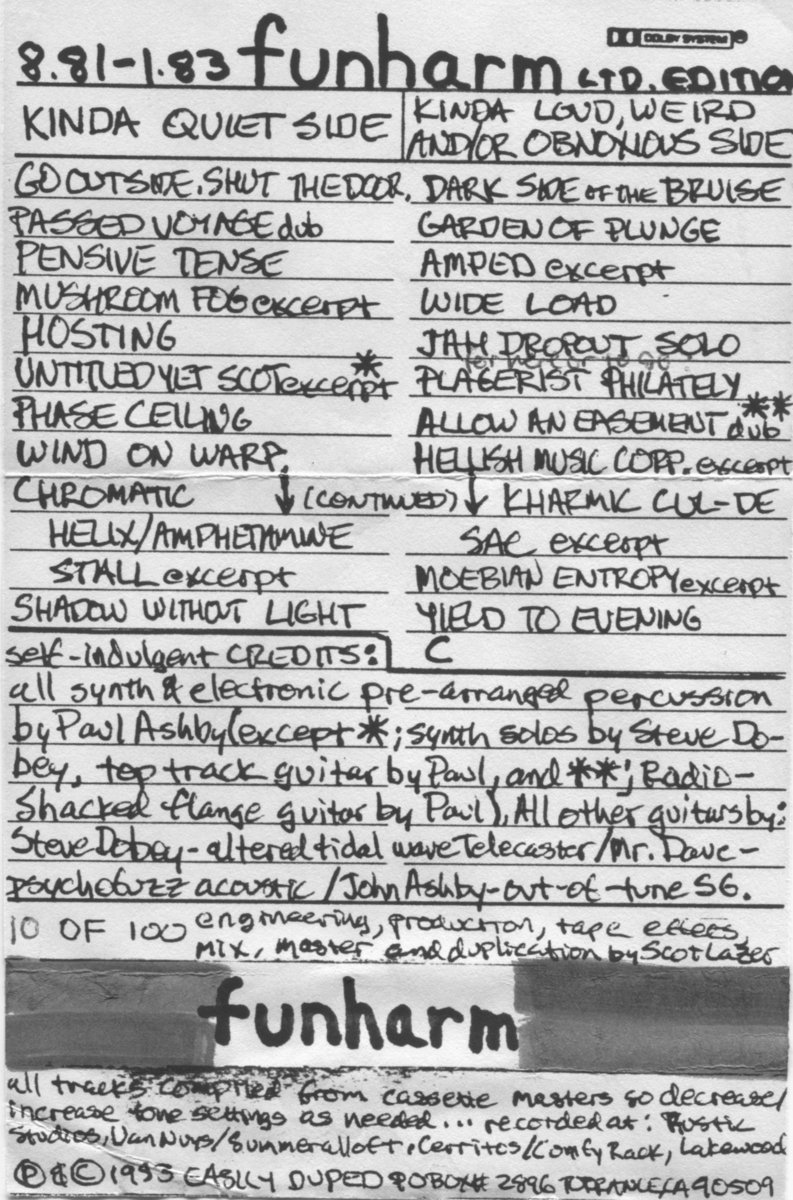 DOLBY SYSTEM
8.81-1.83 funharm LTD. EDITION
KINDA QUIET SIDE
KINDA LOUD, WEIRD
AND/OR OBNOXIOUS SIDE
GO OUTSIDE. SHUT THE DOOR.
PASSED VOYAGE dub
PENSIVE TENSE
MUSHROOM FOG excerpt
HOSTING
UNTITLED YLT SCOT excerpt *
PHASE CEILING
WIND ON WARP.
CHROMATIC ↓ (CONTINUED) ↓
HELIX/AMPHETAMINE
STALL excerpt
SHADOW WITHOUT LIGHT
DARK SIDE OF THE BRUISE
GARDEN OF PLUNGE
AMPED excerpt
WIDE LOAD
JAH DROPOUT SOLO
PLAGERIST PHILATELY
ALLOW AN EASEMENT dub **
HELLISH MUSIC CORP. excerpt
KHARMIC CUL-DE
SAC excerpt
MOEBIAN ENTROPY excerpt
YIELD TO EVENING
C
self-indulgent CREDITS:
all synth & electronic pre-arranged percussion
by Paul Ashby (except *; synth solos by Steve Do-
bey, top track guitar by Paul, and **; Radio-
Shacked flange guitar by Paul), All other guitars by:
Steve Dobey-altered tidal wave Telecaster/Mr. Dave-
psychofuzz acoustic/John Ashby-out-of-tune SG.
10 OF 100 engineering, production, tape effects,
mix, master and duplication by Scot Lazer
funharm
all tracks compiled from cassette masters so decrease/
increase tone settings as needed... recorded at: Rustic
Studios, Van Nuys/Summeralloft, Cerritos/Comfy Rack, Lakewood
Ⓟ & © 1993 EASILY DUPED POBOX# 2896 TORRANCE CA 90509